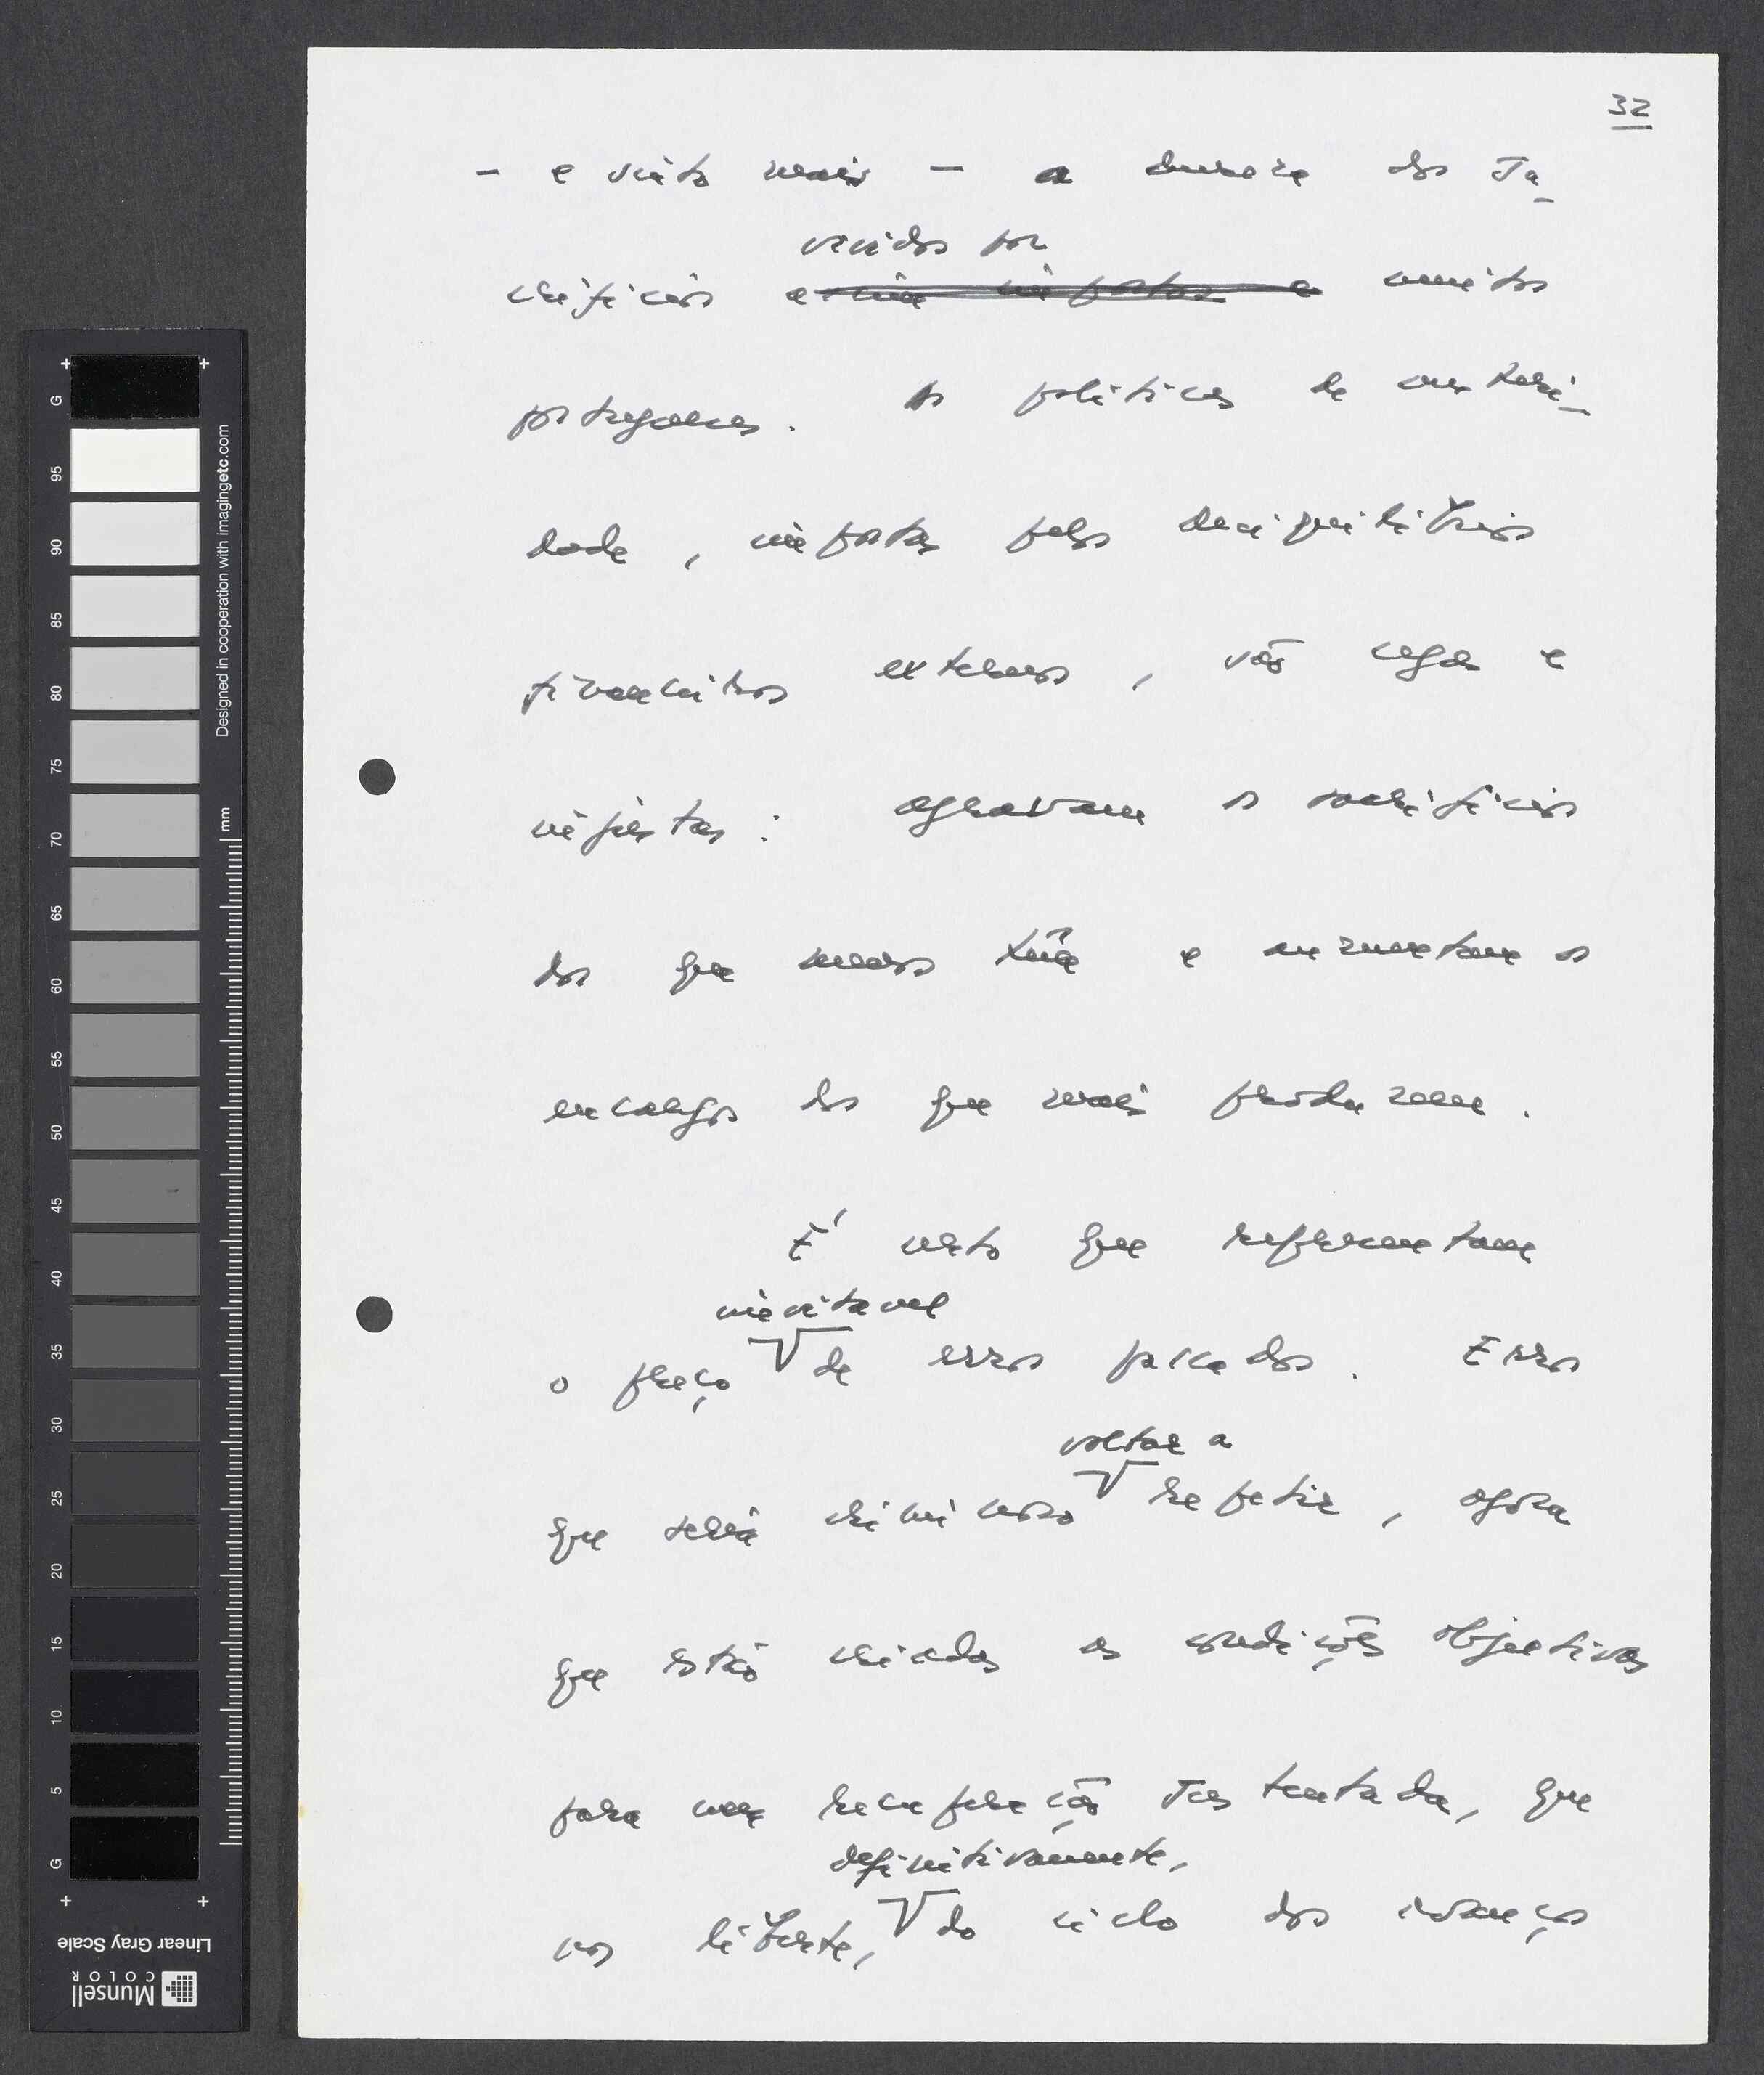 32
– e sinto mais – a dureza dos sa_
vividos por
crifícios muitos
portugueses. As políticas de austeri_
dade, impostas pelos desiquilíbrios
financeiros externos, são cegas e
injustas: agravam os sacrifícios
dos que menos têm e aumentam os
encargos dos que mais produzem.
É certo que representam
inevitavel
o preço de erros passados. Erros
voltar a
que seria criminoso repetir, agora
que estão criadas as condições objectivas
para uma recuperação sustentada, que
definitivamente,
nos liberte, do ciclo dos avanços
G
95
90
85
80
75
70
65
60
55
50
45
40
35
30
25
20
15
10
5
G
mm
Designed in cooperation with imagingetc.com
Linear Gray Scale
Munsell
COLOR